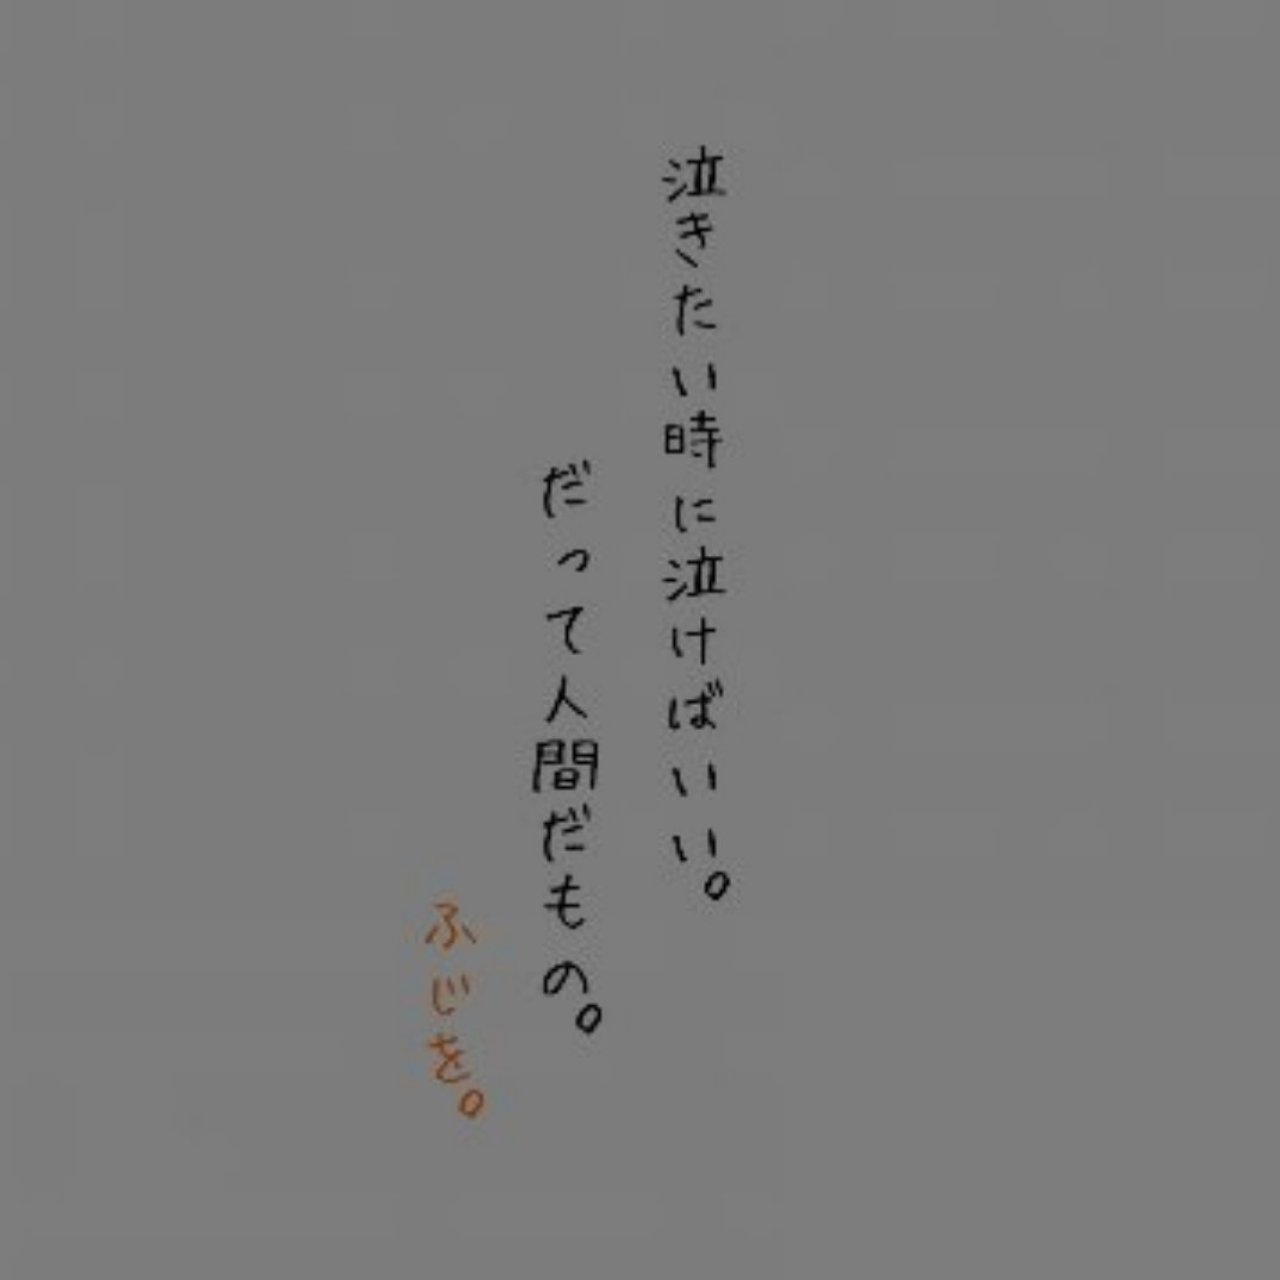 泣きたい時に泣けばいい。
だって人間だもの。
ふじを。